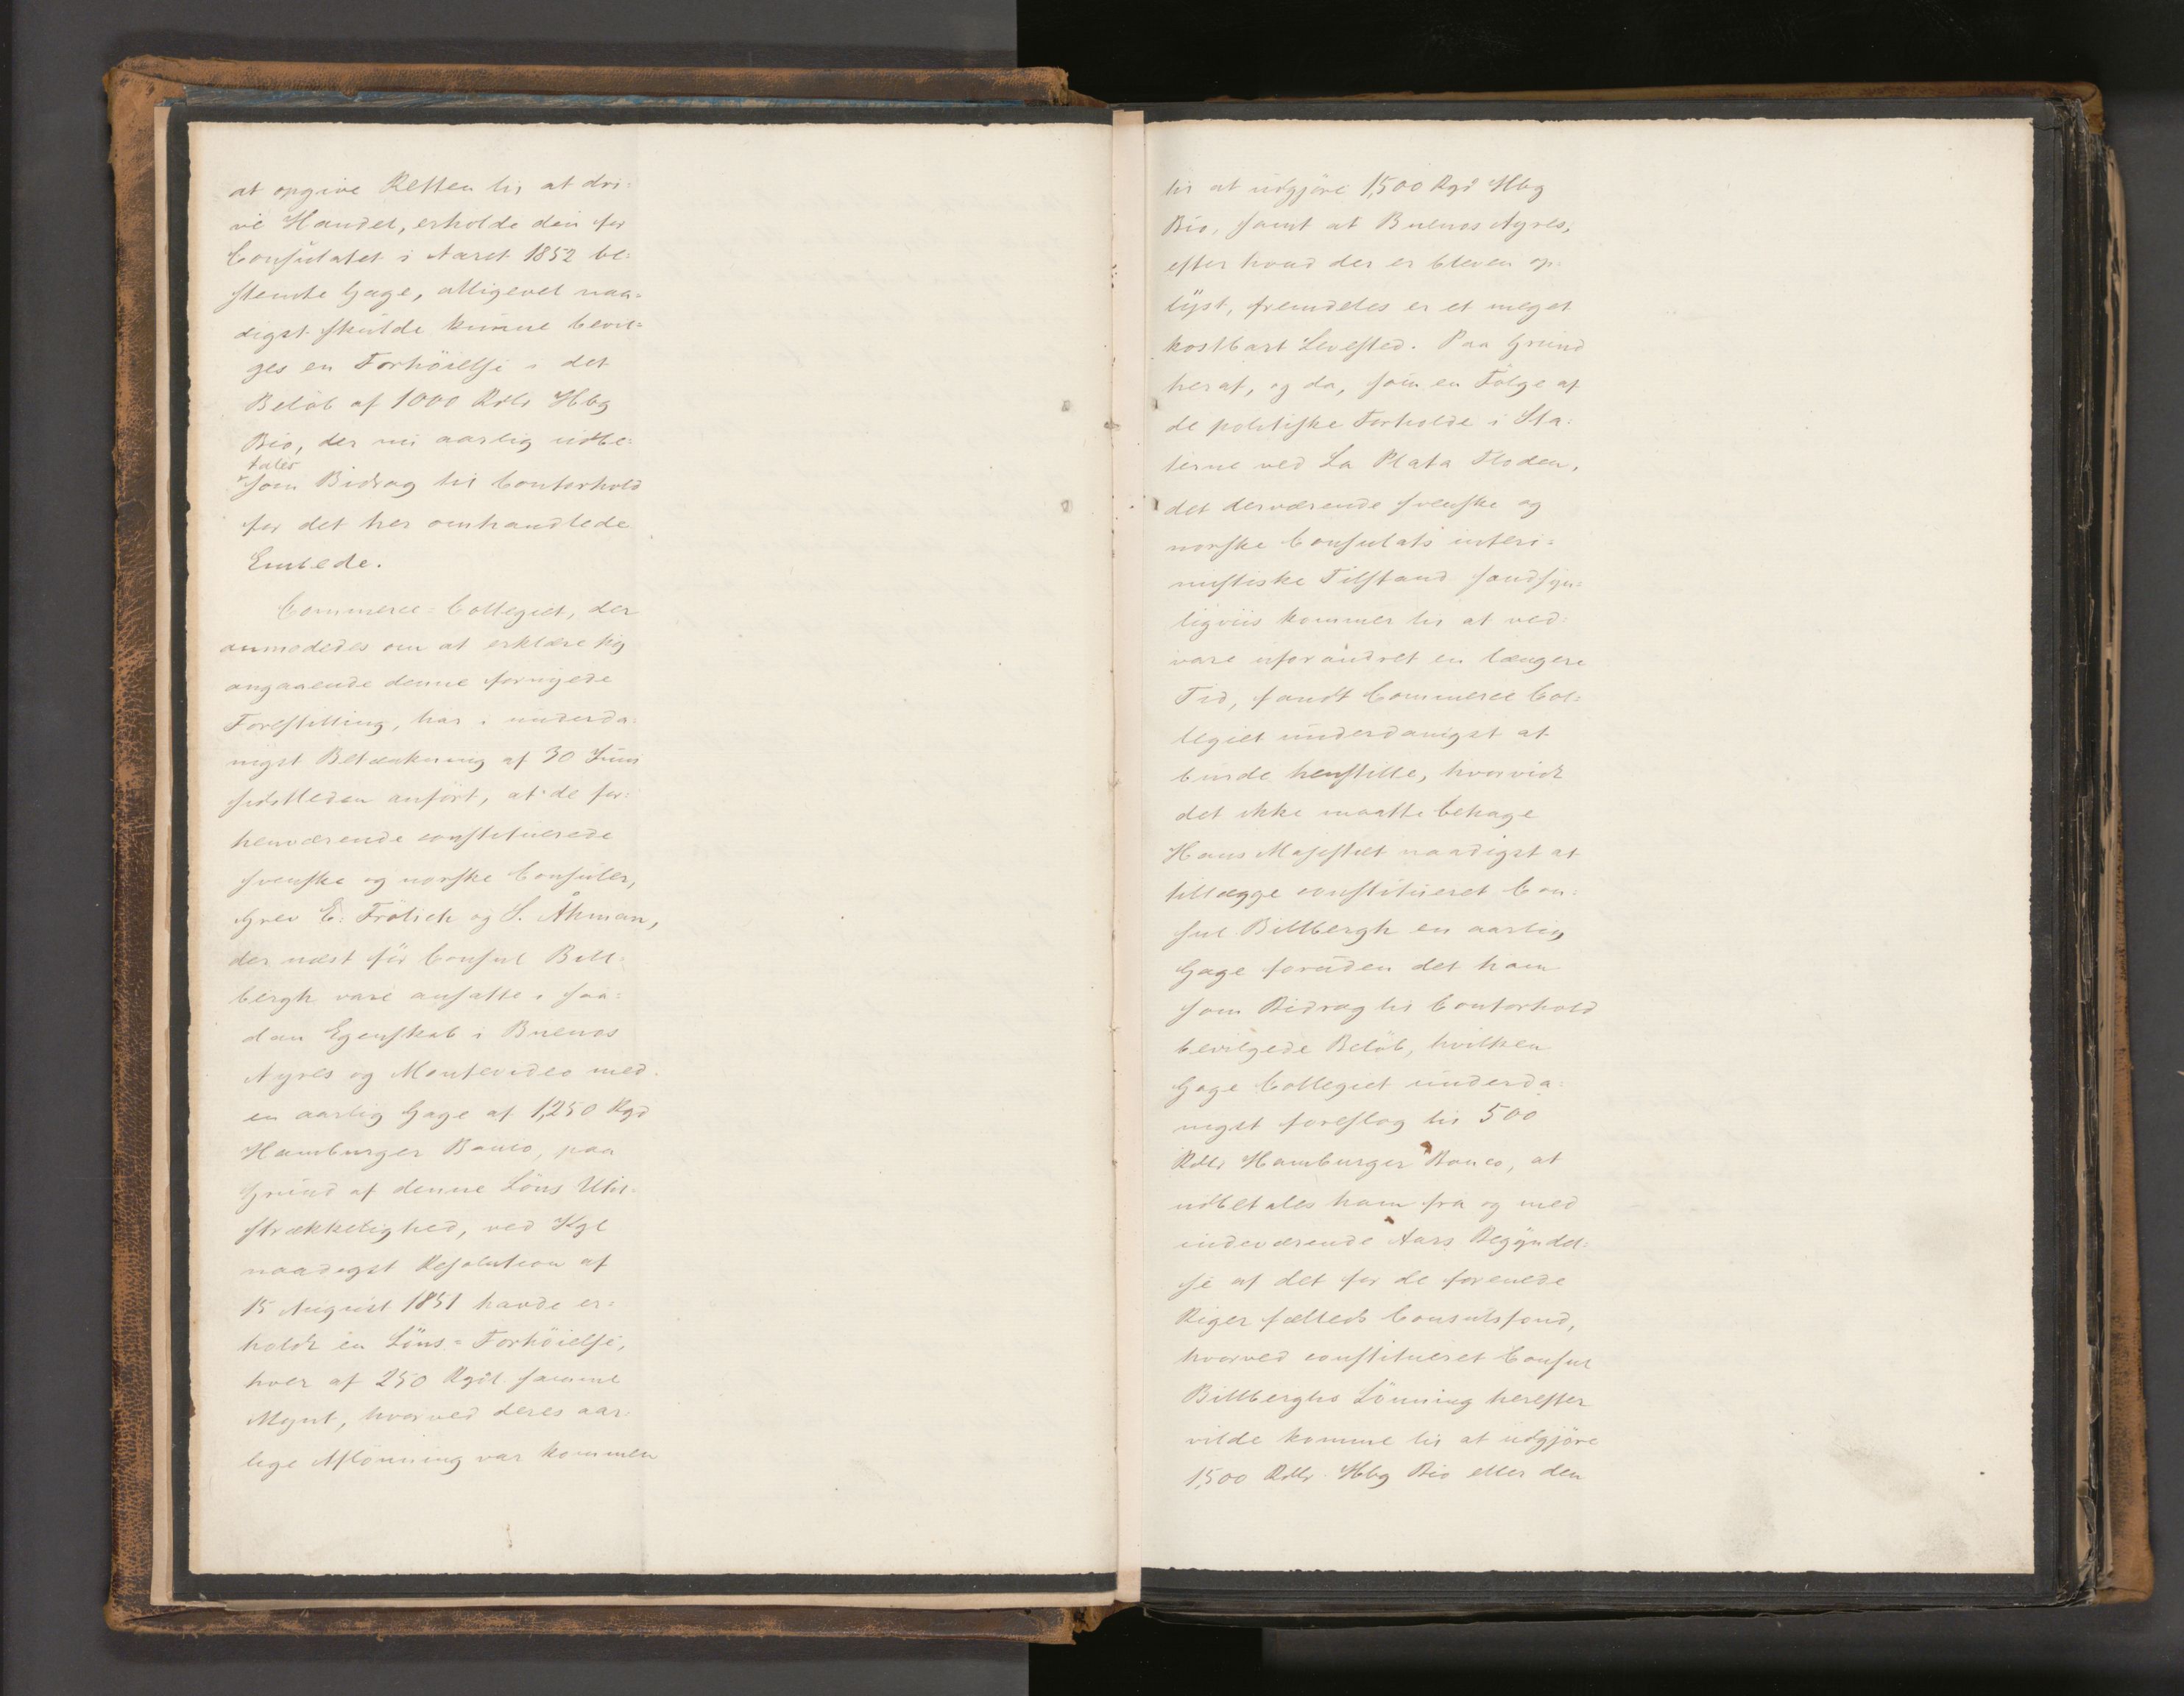 at opgive Retten til at dri=
ve Handel, erholde den for
Consulatet i Aaret 1852 be=
stemte Gage, alligevel naa=
digst skulde kunne bevil=
ges en Forhöielse i det
Belöb af 1000 Rdlr Hbg
Bco, der nu aarlig udbe=
tales
som Bidrag til Contorhold
for det her omhandlede
Embede.
Commerce=Collegiet, der
anmodedes om at erklære sig
angaaende denne fornyede
Forestilling, har i underda=
nigst Betænkning af 30 Juni
sidstleden anfört, at de for=
henværende constituerede
svenske og norske Consuler,
Grev E. Frölich og S. Åhman,
der næst för Consul Bill=
bergh vare ansatte i saa=
dan Egenskab i Buenos
Ayres og Montevideo med
en aarlig Gage af 1,250 Rgd
Hamburger Banco, paa
Grund af denne Löns Util=
strækkelighed, ved Kgl
naadigst Resolution af
15 August 1851 havde er=
holdt en Löns=Forhöielse,
hver af 250 Rgdl samme
Mynt, hvorved deres aar=
lige Aflönning var kommen
til at udgjöre 1,500 Rgd Hbg
Bco, samt at Buenos Ayres,
efter hvad der er bleven op=
lyst, fremdeles er et meget
kostbart Levested. Paa Grund
heraf, og da, som en Fölge af
de politiske Forholde i Sta=
terne ved La Plata Floden,
det derværende svenske og
norske Consulats interi=
mistiske Tilstand sandsyn=
ligviis kommer til at ved=
vare uforandret en længere
Tid, fandt Commerce Col=
legiet underdanigst at
burde henstille, hvorvidt
det ikke maatte behage
Hans Majestæt naadigst at
tillægge constitueret Con=
sul Billbergh en aarlig
Gage foruden det ham
som Bidrag til Contorhold
bevilgede Belöb, hvilken
Gage Collegiet underda=
nigst foreslog til 500
Rdlr Hamburger Banco, at
udbetales ham fra og med
indeværende Aars Begyndel=
se af det for de forenede
Riger fælleds Consulsfond,
hvorved constitueret Consul
Billberghs Lönning herefter
vilde komme til at udgjöre
1,500 Rdlr Hbg Bco eller den